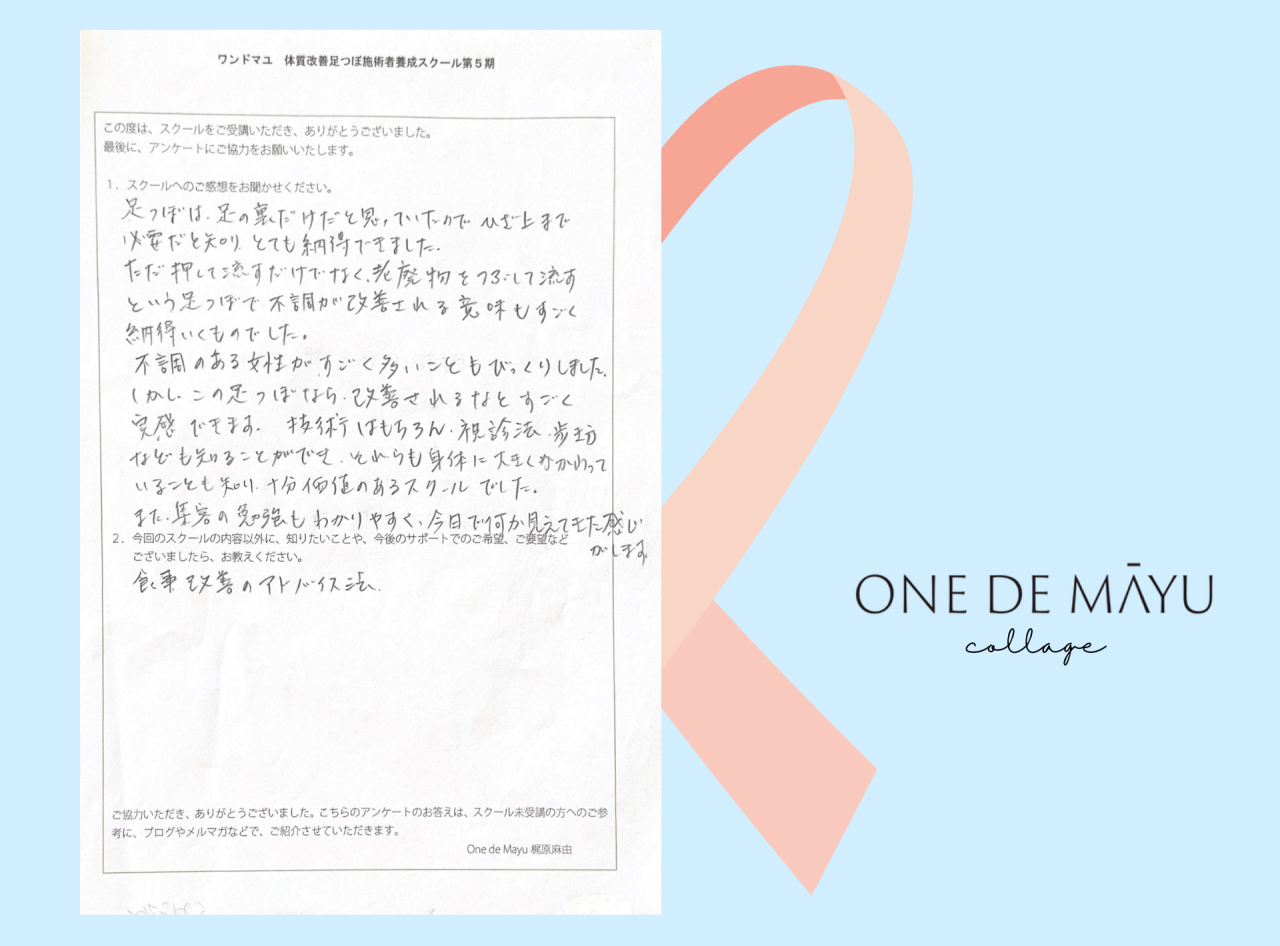 ワンドマユ 体質改善足つぼ施術者養成スクール第5期
この度は、スクールをご受講いただき、ありがとうございました。
最後に、アンケートにご協力をお願いいたします。
1．スクールへのご感想をお聞かせください。
足つぼは、足の裏だけだと思っていたので ひざ上まで
必要だと知り、とても納得できました。
ただ押して流すだけでなく、老廃物をつぶして流す
という足つぼで 不調が改善される意味もすごく
納得いくものでした。
不調のある女性が すごく多いこともびっくりしました。
しかし、この足つぼなら、改善されるなと すごく
実感できます。 技術はもちろん、視診法、歩き方
なども知ることができ、それらも身体に大きくかかわって
いることも知り、十分価値のあるスクールでした。
また、集客の勉強もわかりやすく、今日で何か見えてきた感じ
がします。
2．今回のスクールの内容以外に、知りたいことや、今後のサポートでのご希望、ご要望など
ございましたら、お教えください。
食事改善のアドバイス法。
ご協力いただき、ありがとうございました。こちらのアンケートのお答えは、スクール未受講の方へのご参
考に、ブログやメルマガなどで、ご紹介させていただきます。
One de Mayu 梶原麻由
ONE DE MĀYU
collage